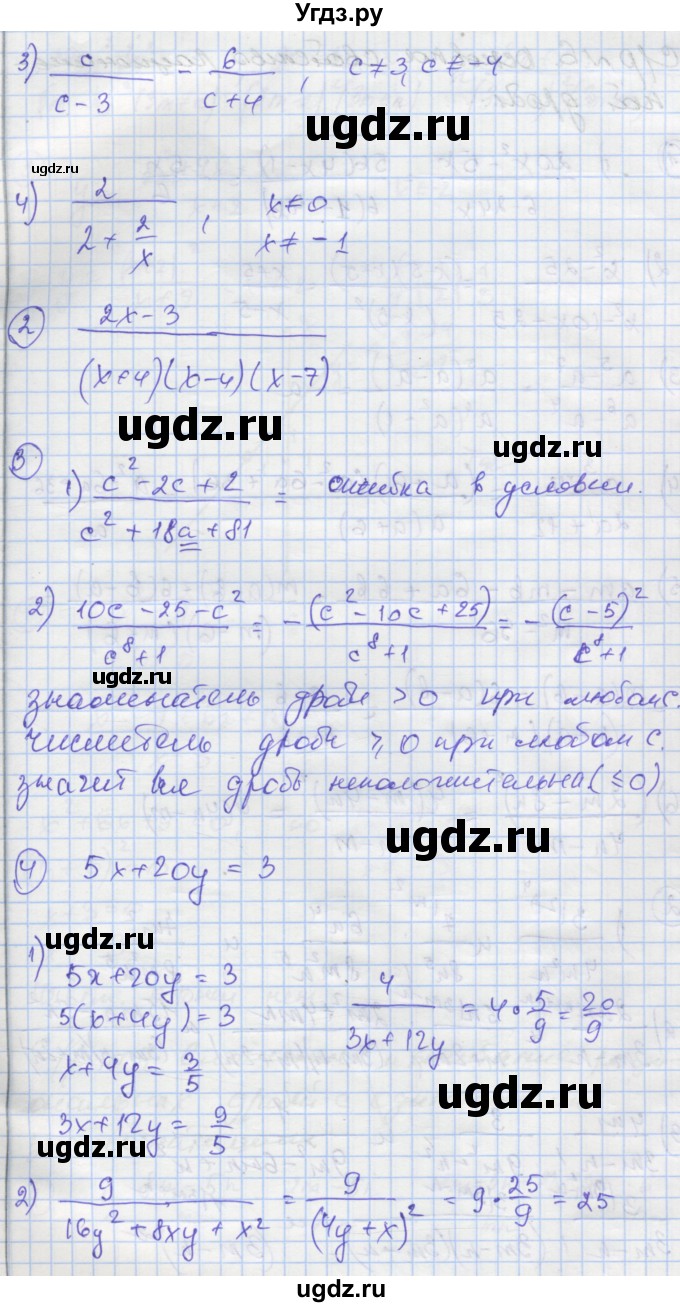 Угдз.ру
3) c/(c-3) - 6/(c+4), c≠3, c≠-4
ugdz.ru
ugdz.ru
4) 2/(2+2/x), x≠0
x≠-1
② (2x-3)/((x+4)(x-4)(x-7))
ugdz.ru
③
ugdz.ru
1) (c²-2c+2)/(c²+18a+81) = ошибка в условии.
2) (10c-25-c²)/(c⁸+1) = -(c²-10c+25)/(c⁸+1) = -(c-5)²/(c⁸+1)
ugdz.ru
знаменатель дроби >0 при любом c.
числитель дроби ⩾0 при любом c.
значит вся дробь неположительна (≤0)
ugdz.ru
④ 5x+20y=3
ugdz.ru
1) 5x+20y=3
5(x+4y)=3
x+4y=3/5
3x+12y=9/5
4/(3x+12y) = 4·5/9 = 20/9
ugdz.ru
ugdz.ru
2) 9/(16y²+8xy+x²) = 9/(4y+x)² = 9·25/9 = 25
ugdz.ru